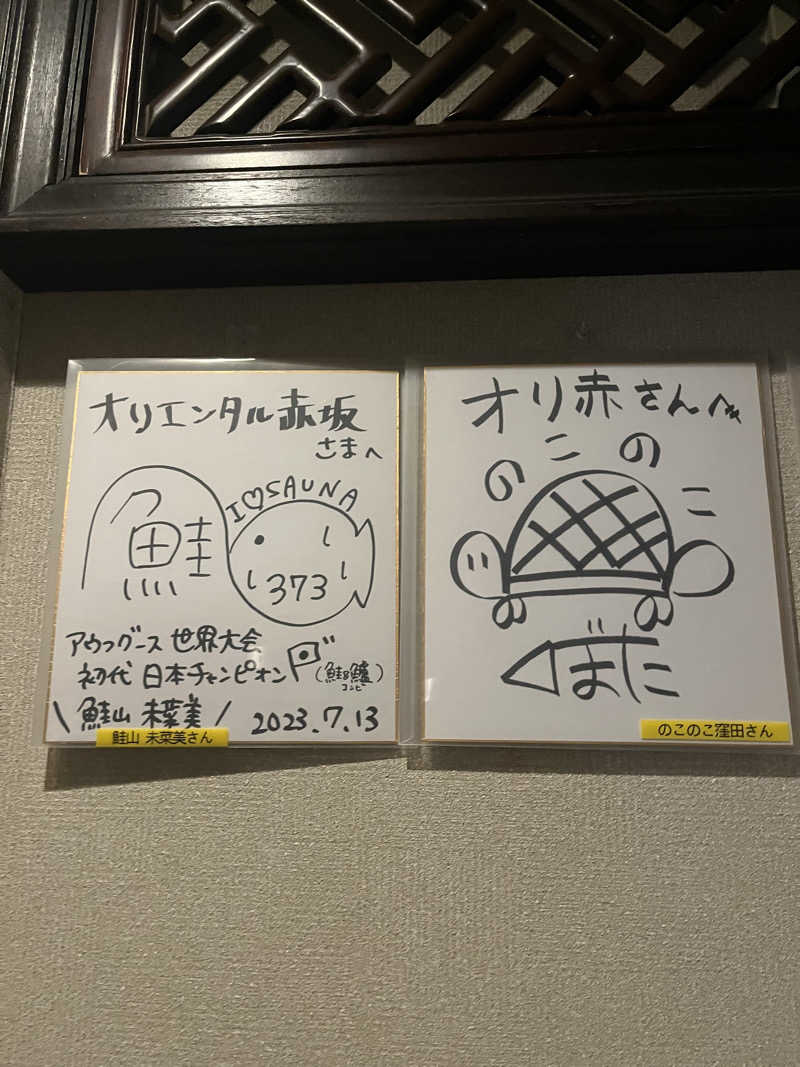 オリエンタル赤坂
さまへ
鮭
I♡SAUNA
373
アウフグース 世界大会
初代 日本チャンピオン
(鮭&鱸)
コンビ
\ 鮭山 未菜美 /
2023.7.13
鮭山 未菜美さん
オリ赤さんへ
のこのこ
くぼた
のこのこ窪田さん